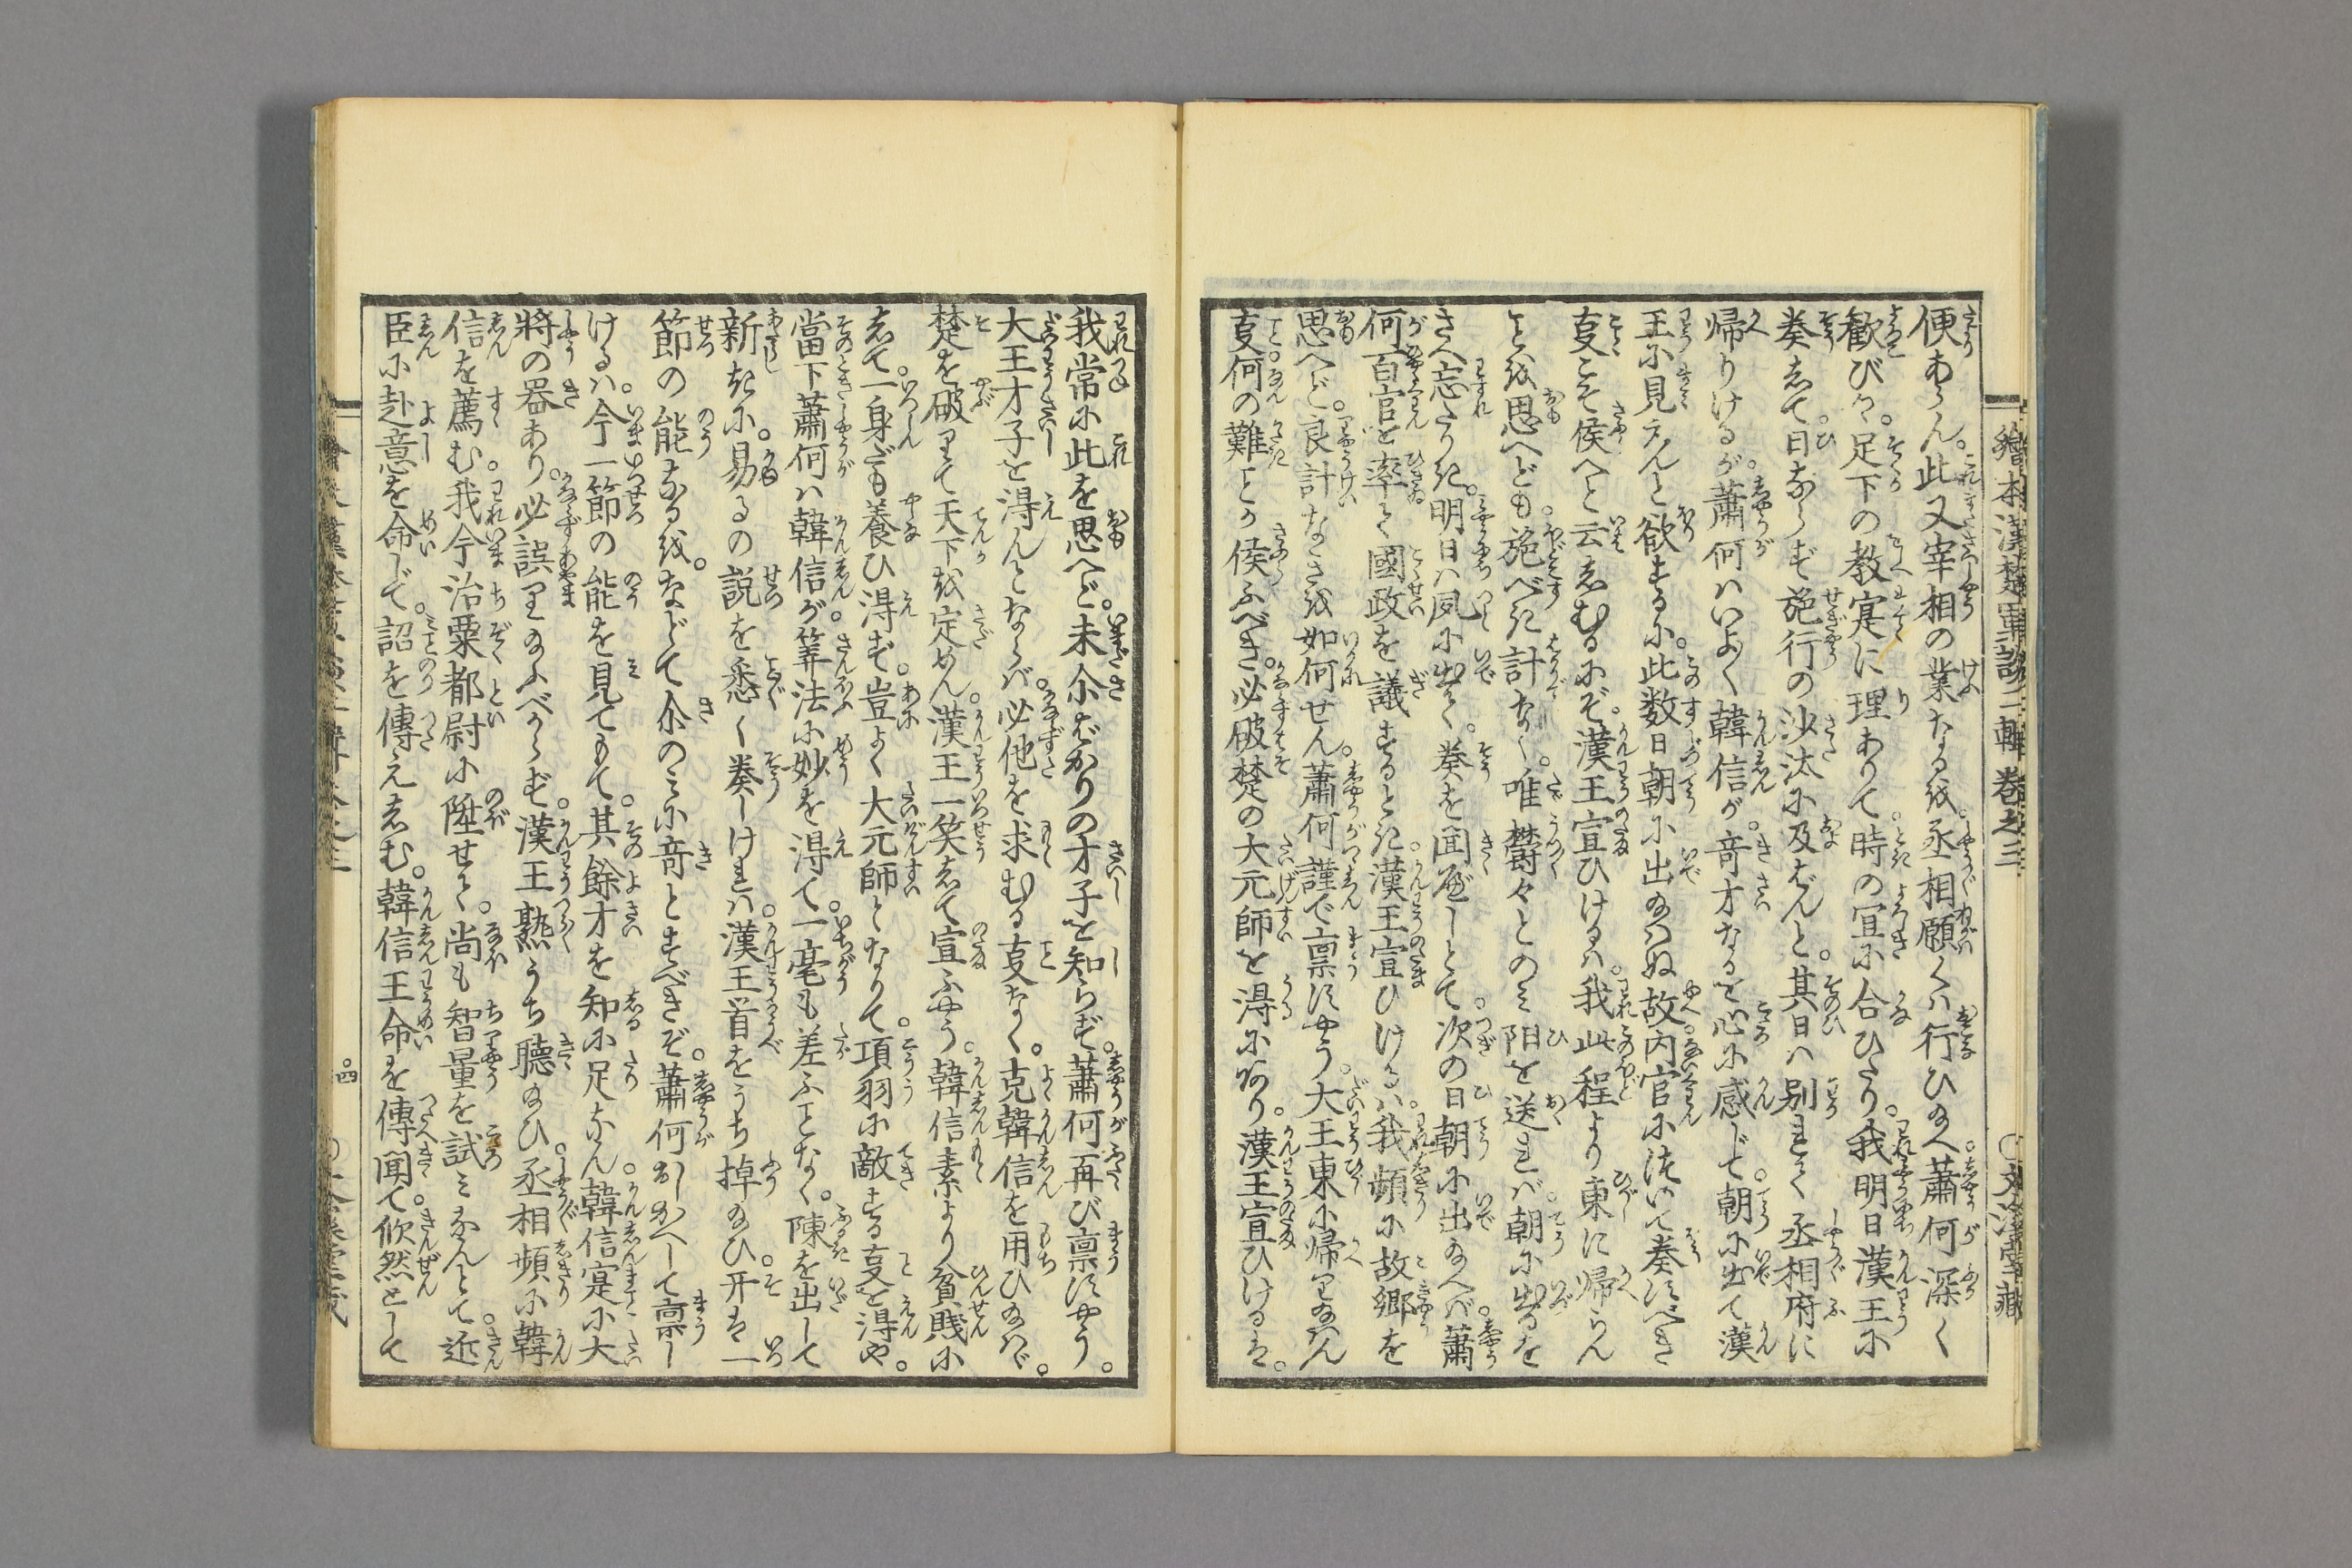 繪本漢楚軍談二輯 卷之三 ○文溪堂藏
便あらん。此又宰相の業なるを。丞相願くハ行ひ給へ。蕭何深く
歓び。足下の教寔に理ありて。時の宜に合ひたり。我明日漢王に
奏して。日ならず施行の沙汰に及ばんと。其日ハ別れて丞相府に
帰りけるが。蕭何ハいよ〳〵韓信が。竒才なるを心に感じて。朝に出て漢
王に見えんと欲するに。此数日朝に出給ハぬ故。内官に洩いて奏すべき
㕝こそ侯へと云しむるにぞ。漢王宣ひけるハ。我此程より東に帰らん
ことを思へども。施べき計なく。唯欝々とのミ陽を送れバ。朝に出るを
さへ忘たりき。明日ハ夙に出て。奏を聞届しとて。次の日朝に出給へバ。蕭
何百官を率て國政を議するとき。漢王宣ひけるハ。我頻に故郷を
思へど。良計なきを如何せん。蕭何謹で稟すやう。大王東に帰り給はん
㕝。何の難ことか侯ふべき。必破楚の大元師を得に阿り。漢王宣ひけるは。
我常に此を思へど。未尒ばかりの才子を知らず。蕭何再び稟すやう。
大王才子を得んとならバ。必他を求むる㕝なく。克韓信を用ひ給ハヾ。
楚を破りて天下を定めん。漢王一笑して宣ふやう。韓信素より貧賤に
して。一身だも養ひ得ず。豈よく大元師となりて。項羽に敵する㕝を得や。
當下蕭何ハ韓信が。筭法に妙を得て。一毫も差ふことなく。陳を出して
新きに。易るの説を悉く奏しけれハ。漢王首をうち掉給ひ。开は一
節の能なるを。などて尒のミに竒とすべきぞ。蕭何おしかへして稟し
けるハ。今一節の能を見てもて。其餘才を知に足なん。韓信寔に大
將の器あり。必誤り給ふべからず。漢王熟うち聴給ひ。丞相頻に韓
信を薦む。我今治粟都尉に陞せて。尚も智量を試ミなんとて。近
臣に赴意を命じて。詔を傳えしむ。韓信王命を傳聞て。忻然として
四